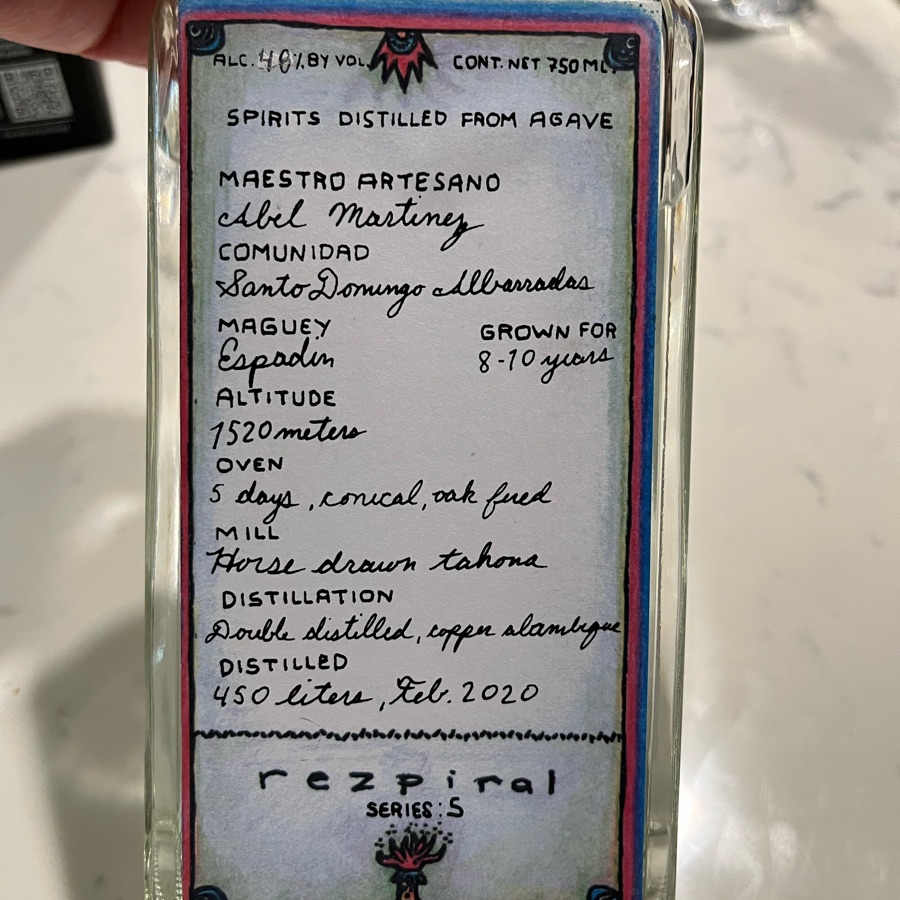 ALC. 48% BY VOL. CONT. NET 750 ML.
SPIRITS DISTILLED FROM AGAVE
MAESTRO ARTESANO
Abel Martinez
COMUNIDAD
Santo Domingo Albarradas
MAGUEY GROWN FOR
Espadin 8-10 years
ALTITUDE
1520 meters
OVEN
5 days, conical, oak fired
MILL
Horse drawn tahona
DISTILLATION
Double distilled, copper alambique
DISTILLED
450 liters, Feb. 2020
rezpiral
SERIES: 5